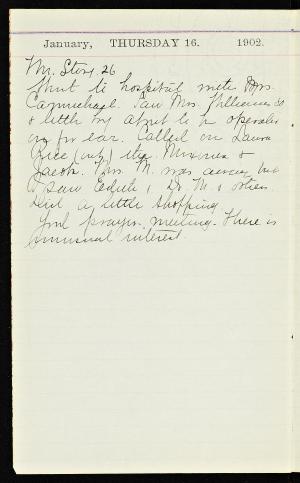 January, THURSDAY 16. 1902.
Mr. Story 26
Went to hospital mete Mrs.
Carmichael. Saw Mrs. Williams
& little boy about to be operated
on for ear. Called on Laura
Rice
Jacobs. Mrs. M. was away but
saw Edith, Dr. M. & others.
Did a little shopping.
Good prayer meeting. There is
unusual interest.